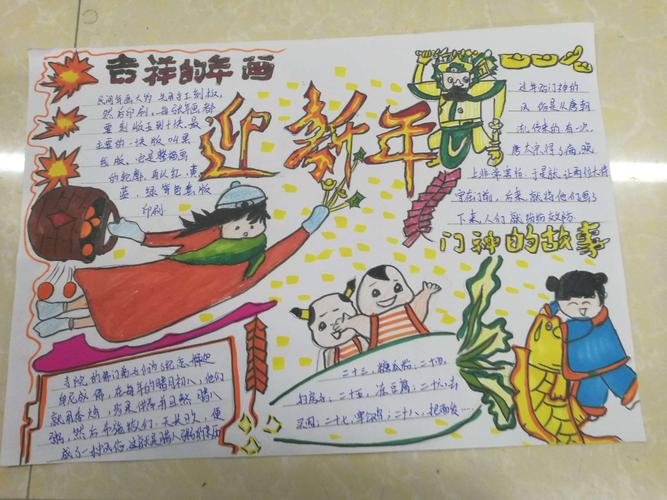 吉祥的年画
民间年画大约 先用手工刻板,
然后印刷,每张年画都
要刻版五到十块,最
主要的一块版叫墨
线版,它是整幅画
的轮廓,再以红、黄
蓝,绿等色套版
印刷
迎新年
过年贴门神的
风俗是从唐朝
流传来的有一次,
唐太宗得了病,晚
上非常害怕,于是就让两位大将
守在门前,后来,就将他们画了
下来,人们
门神的故事
寺院的佛门弟子们为了纪念释迦
牟尼成佛,在每年的腊月初八,他们
就用香格
粥,然后布施
成了一种风俗,这就是腊八粥的来历
二十三,糖瓜粘;二十四,
扫房子;二十五,冻豆腐;二十六,去
买肉;二十七,宰公鸡;二十八,把面发……